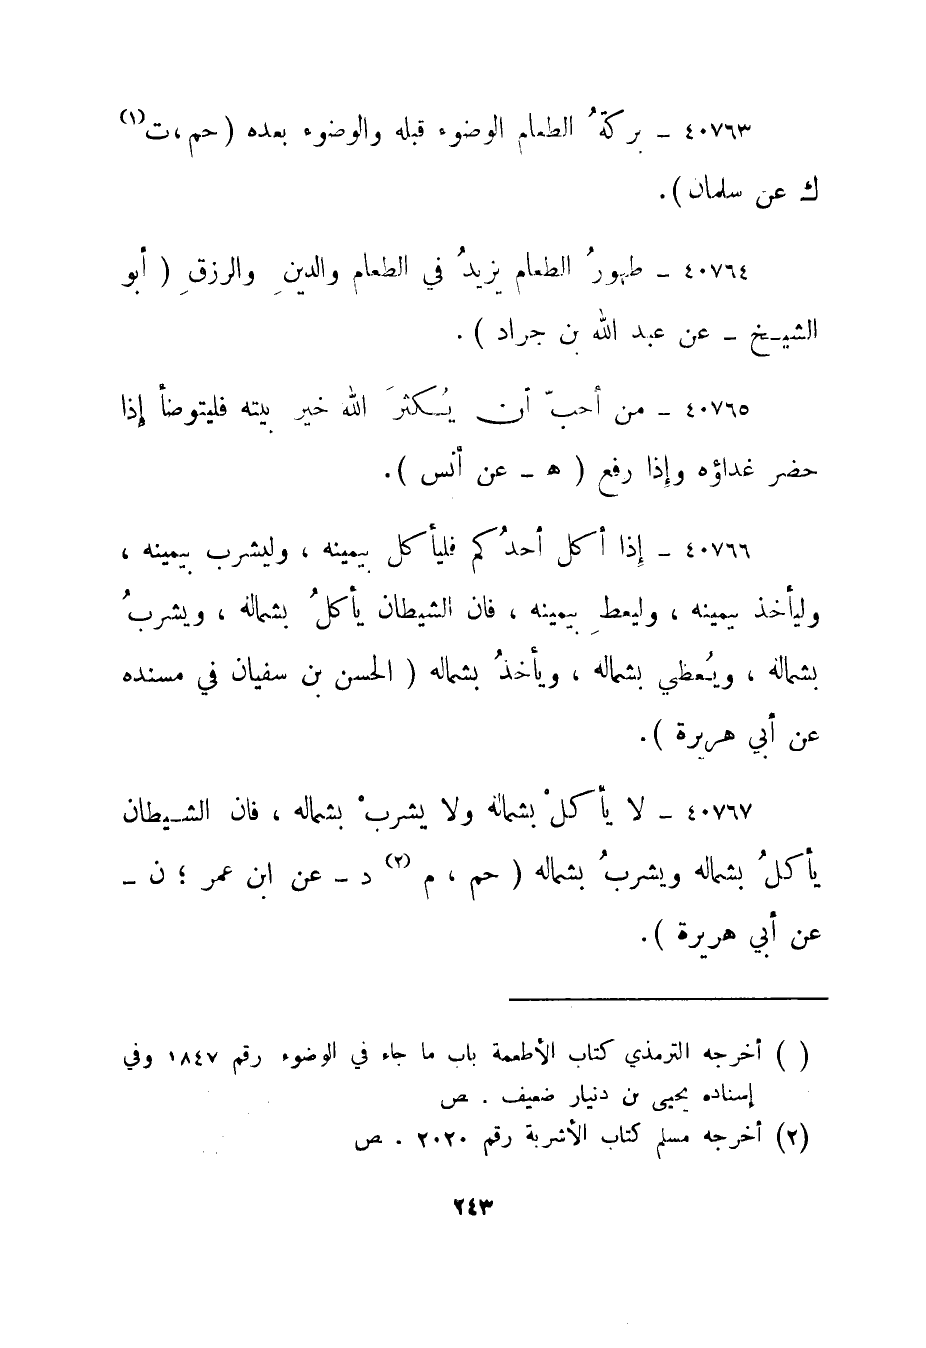 ٤٠٧٦٣ ـ بركةُ الطعام الوضوء قبله والوضوء بعده ( حم ،ت(١)
ك عن سلمان ).
٤٠٧٦٤ ـ طهورُ الطعام يزيدُ في الطعام والدينِ والرزقِ ( أبو
الشيخ ـ عن عبد الله بن جراد ) .
٤٠٧٦٥ ـ من أحبّ أن يُكثرَ الله خير بيته فليتوضأ إذا
حضر غداؤه وإذا رفع ( ه ـ عن أنس ).
٤٠٧٦٦ ـ إذا أكل أحدُكم فليأكل بيمينه ، وليشرب بيمينه ،
وليأخذ بيمينه ، وليعطِ بيمينه ، فان الشيطان يأكلُ بشماله ، ويشربُ
بشماله ، ويُعطي بشماله ، ويأخذُ بشماله ( الحسن بن سفيان في مسنده
عن أبي هريرة ).
٤٠٧٦٧ ـ لا يأكلْ بشماله ولا يشربْ بشماله ، فان الشيطان
يأكلُ بشماله ويشربُ بشماله ( حم ، م (٢) د ـ عن ابن عمر ؛ ن ـ
عن أبي هريرة ).
( ) أخرجه الترمذي كتاب الأطعمة باب ما جاء في الوضوء رقم ١٨٤٧ وفي
إسناده يحيى بن دنيار ضعيف . ص
(٢) أخرجه مسلم كتاب الأشربة رقم ٢٠٢٠ . ص
٢٤٣